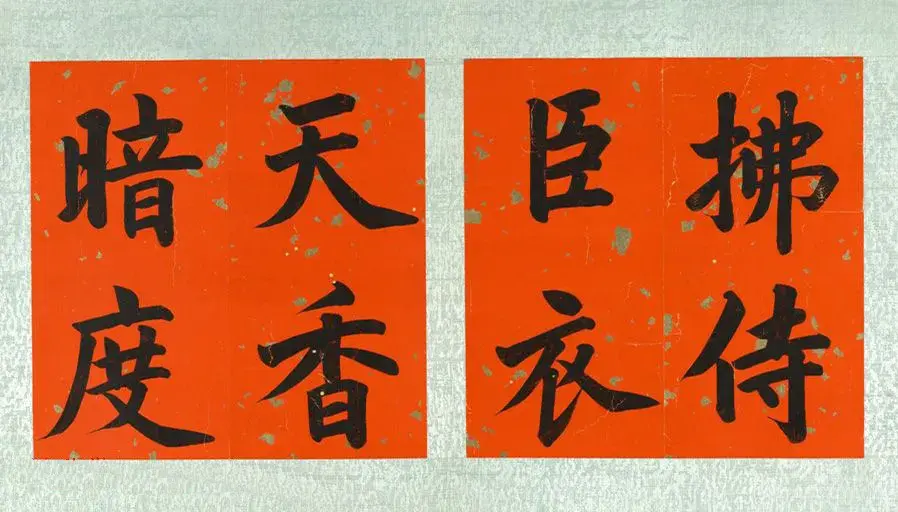 拂侍
臣衣
天香
暗度